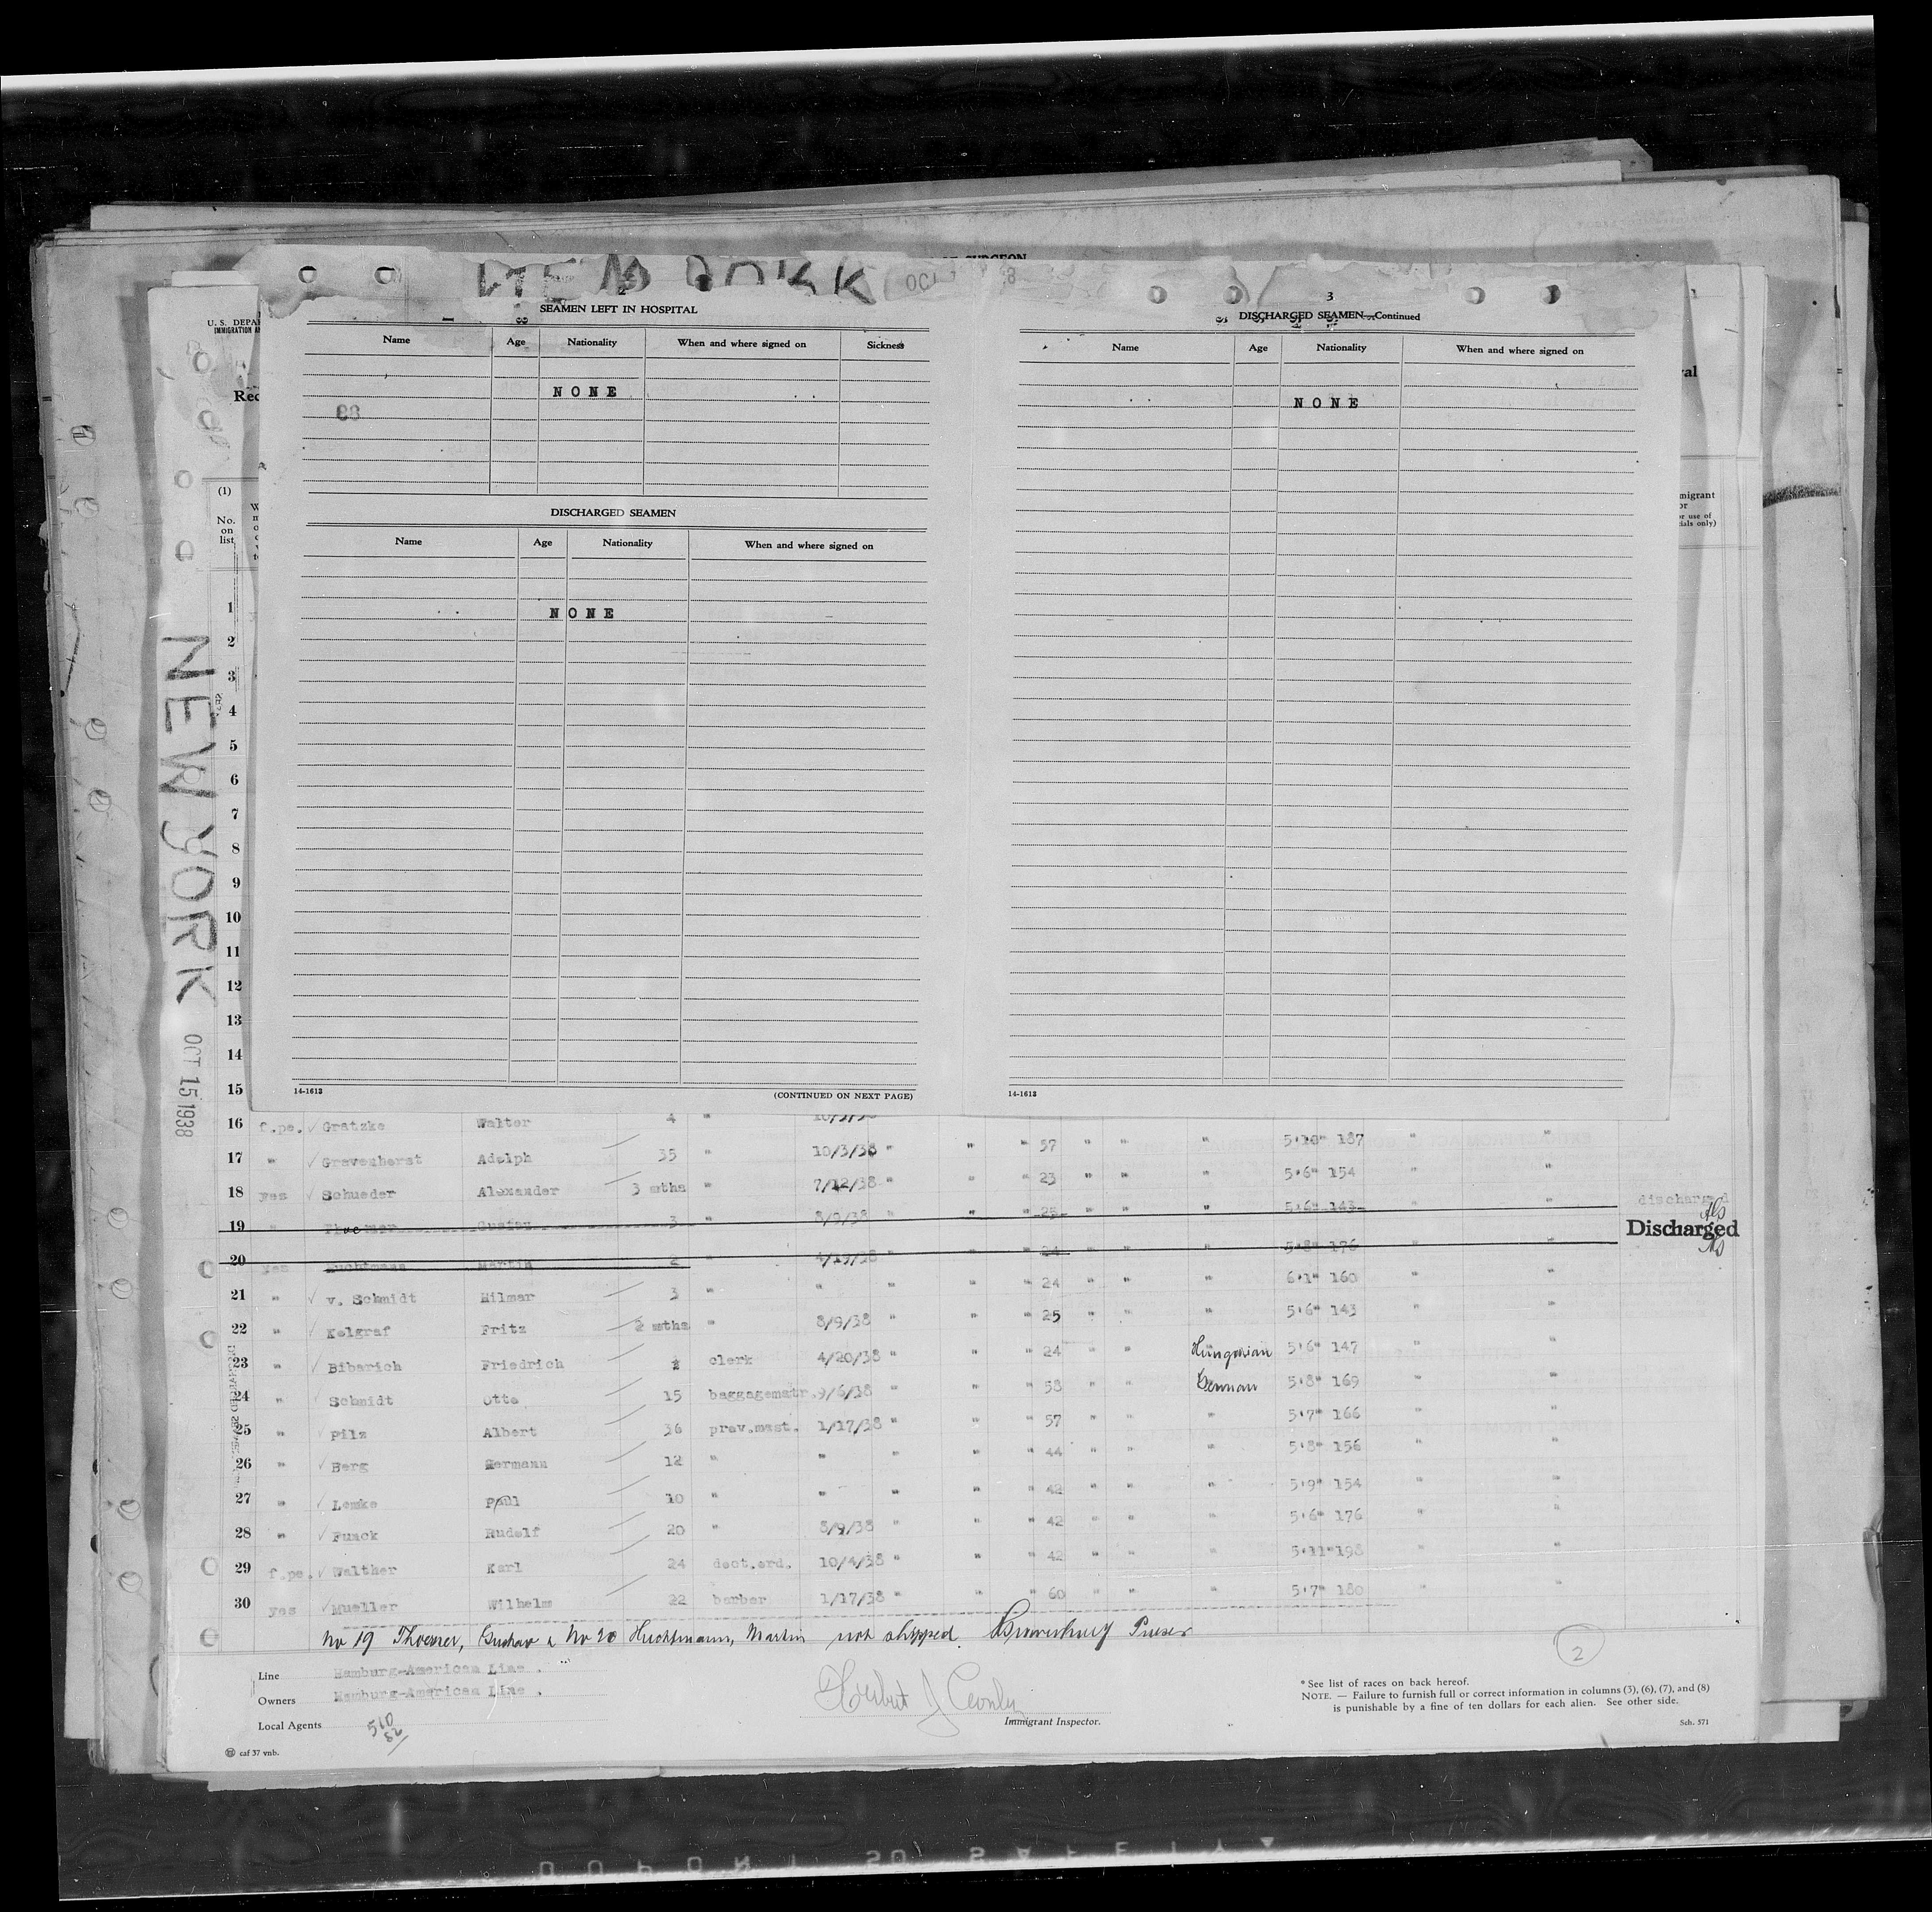 NEW YORK OCT
2
SEAMEN LEFT IN HOSPITAL
Name Age Nationality When and where signed on Sickness
NONE
88
DISCHARGED SEAMEN
Name Age Nationality When and where signed on
NONE
14-1613 (CONTINUED ON NEXT PAGE)
3
DISCHARGED SEAMEN—Continued
Name Age Nationality When and where signed on
NONE
14-1613
U. S. DEPA
IMMIGRATION
(1)
No. on list
NEW YORK OCT 15 1938
1
2
3
4
5
6
7
8
9
10
11
12
13
14
15
16 f.pe. Gratzke Walter 4 "
17 " Gravenhorst Adolph 35 " 10/3/38 " " " 57 " " " 5'10" 187 " "
18 yes Schueder Alexander 3 mths " 7/12/38 " " " 23 " " " 5'6" 154 " "
19 " Thoerner Gustav 3 " 8/9/38 " " " 25 " " " 5'6" 143 " " discharged
20 yes Huchtmann Martin 2 " 4/19/38 " " " 24 " " " 5'8" 176 " " Discharged
21 " v. Schmidt Hilmar 3 " " " " " 24 " " " 6'1" 160 " "
22 " Kolgraf Fritz 2 mths " 8/9/38 " " " 25 " " " 5'6" 143 " "
23 " Bibarich Friedrich clerk 4/20/38 " " " 24 " " Hungarian 5'6" 147 " "
24 " Schmidt Otto 15 baggagemstr. 9/6/38 " " " 58 " " German 5'8" 169 " "
25 " Pilz Albert 36 prov.mast. 1/17/38 " " " 57 " " " 5'7" 166 " "
26 " Berg Hermann 12 " " " " " 44 " " " 5'8" 156 " "
27 " Lemke Paul 10 " " " " " 42 " " " 5'9" 154 " "
28 " Funck Rudolf 20 " 8/9/38 " " " 42 " " " 5'6" 176 " "
29 f.pe. Walther Karl 24 10/4/38 " " " 42 " " " 5'11" 198 " "
30 yes Mueller Wilhelm 22 barber 1/17/38 " " " 60 " " " 5'7" 180 " "
No 19 Thoerner, Gustav & No 20 Huchtmann, Martin not shipped. Purser
2
Line Hamburg-American Line.
Owners Hamburg-American Line.
Local Agents
510
82
Immigrant Inspector.
* See list of races on back hereof.
NOTE. — Failure to furnish full or correct information in columns (3), (6), (7), and (8)
is punishable by a fine of ten dollars for each alien. See other side.
Sch. 571
caf 37 vnb.